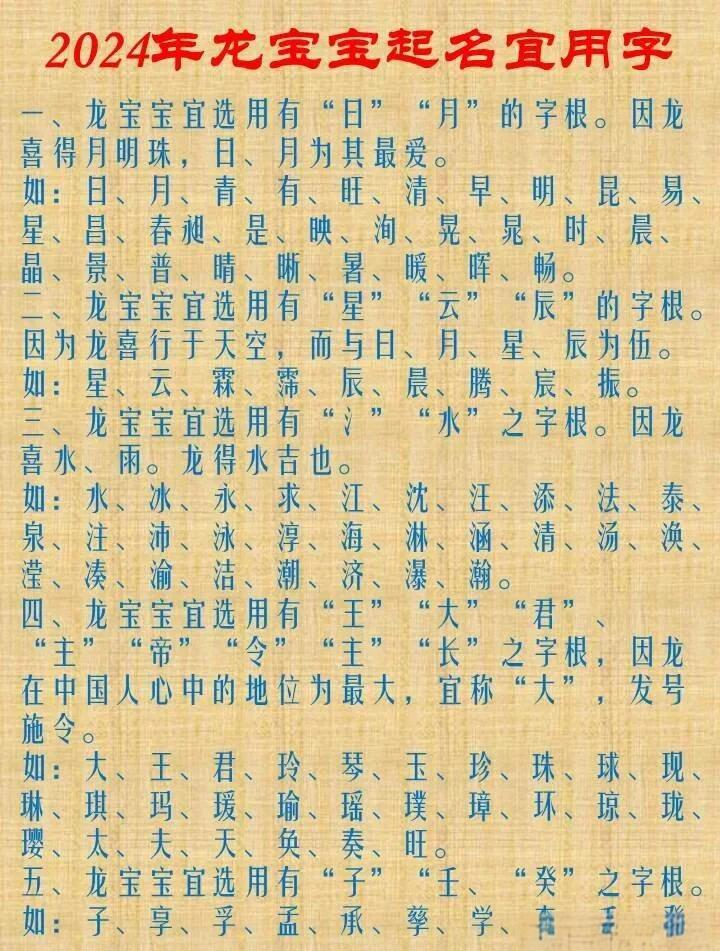 2024年龙宝宝起名宜用字
一、龙宝宝宜选用有“日”“月”的字根。因龙
喜得月明珠，日、月为其最爱。
如：日、月、青、有、旺、清、早、明、昆、易、
星、昌、春昶、是、映、洵、晃、晁、时、晨、
晶、景、普、晴、晰、暑、暖、晖、畅。
二、龙宝宝宜选用有“星”“云”“辰”的字根。
因为龙喜行于天空，而与日、月、星、辰为伍。
如：星、云、霖、霈、辰、晨、腾、宸、振。
三、龙宝宝宜选用有“氵”“水”之字根。因龙
喜水、雨。龙得水吉也。
如：水、冰、永、求、江、沈、汪、添、法、泰、
泉、注、沛、泳、淳、海、淋、涵、清、汤、涣、
滢、凑、渝、洁、潮、济、瀑、瀚。
四、龙宝宝宜选用有“王”“大”“君”、
“主”“帝”“令”“主”“长”之字根，因龙
在中国人心中的地位为最大，宜称“大”，发号
施令。
如：大、王、君、玲、琴、玉、珍、珠、球、现、
琳、琪、玛、瑗、瑜、瑶、璞、璋、环、琼、珑、
璎、太、夫、天、奂、奏、旺。
五、龙宝宝宜选用有“子”“壬、“癸”之字根。
如：子、享、孚、孟、承、孳、学、